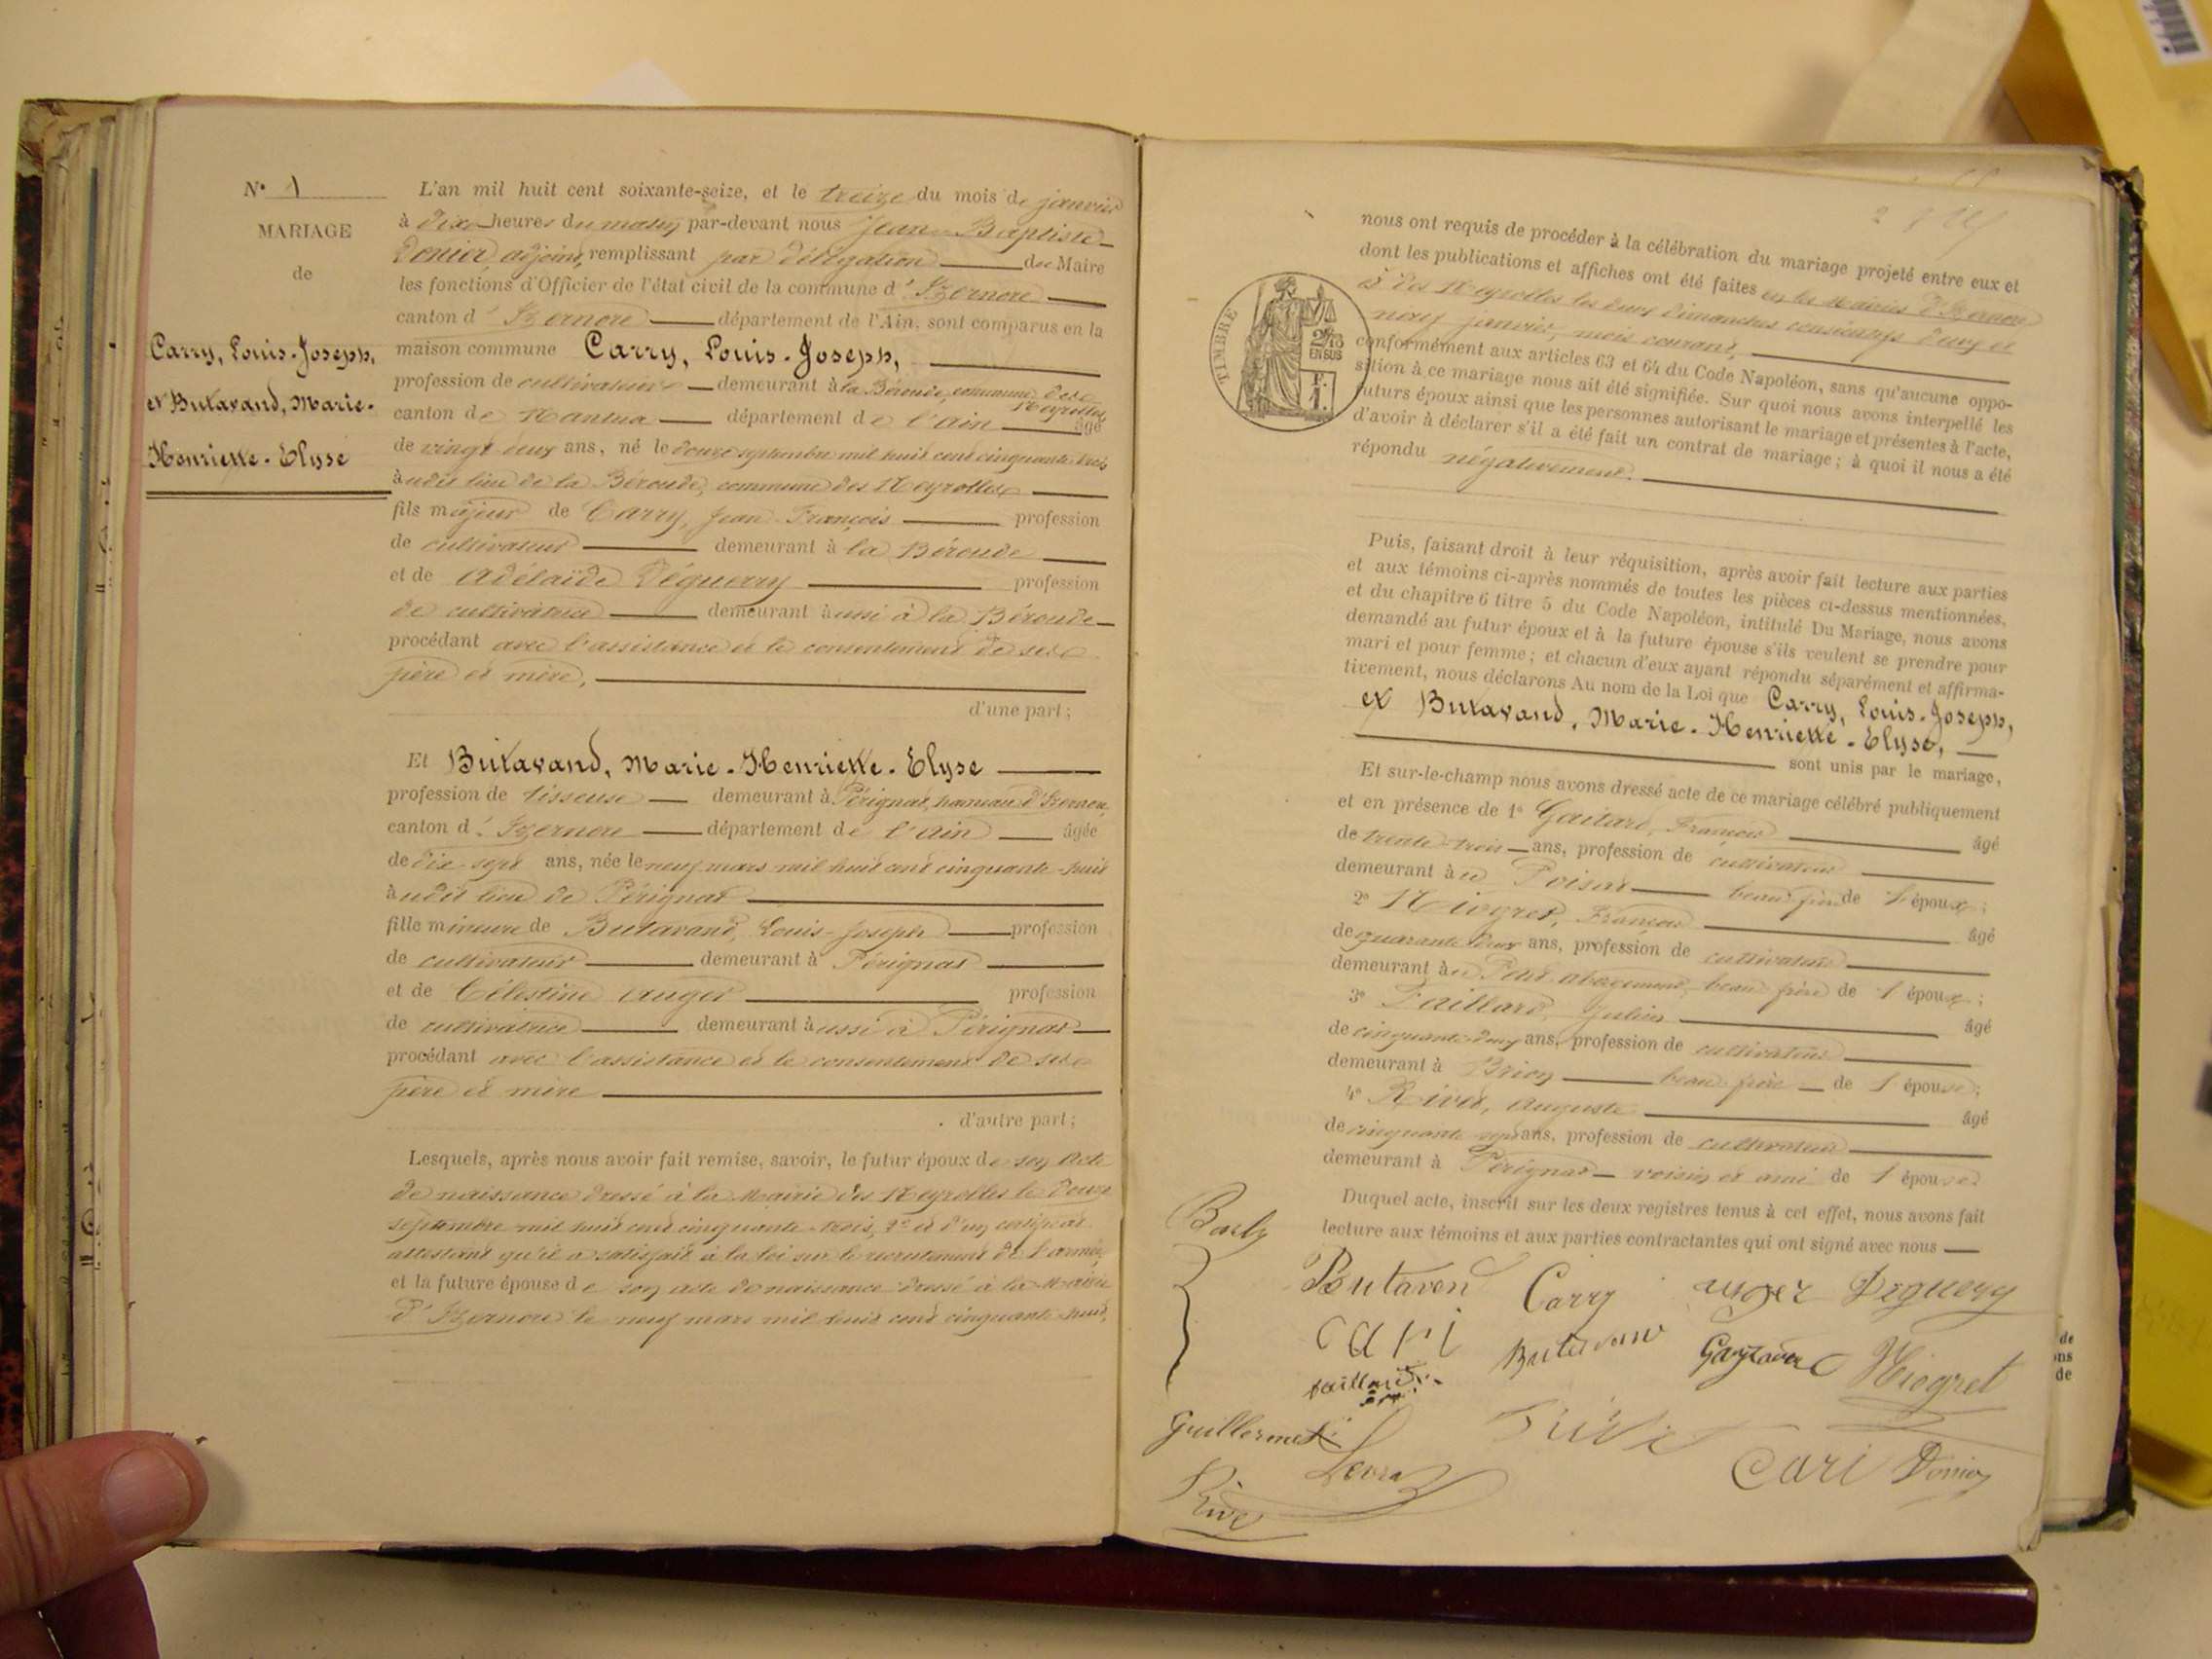 N° 1
MARIAGE
de
Carry, Louis-Joseph,
et Butavand, Marie-
Henriette-Elyse
L'an mil huit cent soixante-seize, et le treize du mois de janvier
à dix heures du matin par-devant nous Jean-Baptiste
Donier adjoint, remplissant par délégation du Maire
les fonctions d'Officier de l'état civil de la commune d'Izernore
canton d'Izernore département de l'Ain, sont comparus en la
maison commune Carry, Louis-Joseph,
profession de cultivateur demeurant à la Béroude, commune des Neyrolles,
canton de Nantua département de l'Ain âgé
de vingt-deux ans, né le douze septembre mil huit cent cinquante-trois
à udit lieu de la Béroude, commune des Neyrolles
fils majeur de Carry, Jean François profession
de cultivateur demeurant à la Béroude
et de Adélaïde Déguerry profession
de cultivatrice demeurant àussi à la Béroude
procédant avec l'assistance et le consentement de ses
père et mère,
d'une part;
Et Butavand, Marie-Henriette-Elyse
profession de tisseuse demeurant à Pérignat, hameau d'Izernore,
canton d'Izernore département de l'Ain âgée
de dix-sept ans, née le neuf mars mil huit cent cinquante-huit
àudit lieu de Pérignat
fille mineure de Butavand, Louis-Joseph profession
de cultivateur demeurant à Pérignat
et de Célestine Auger profession
de cultivatrice demeurant àussi à Pérignat
procédant avec l'assistance et le consentement de ses
père et mère
d'autre part;
Lesquels, après nous avoir fait remise, savoir, le futur époux de son acte
de naissance dressé à la Mairie des Neyrolles le douze
septembre mil huit cent cinquante-trois, 2° et d'un certificat
attestant qu'il a satisfait à la loi sur le recrutement de l'armée,
et la future épouse de son acte de naissance dressé à la Mairie
d'Izernore le neuf mars mil huit cent cinquante-huit,
nous ont requis de procéder à la célébration du mariage projeté entre eux et
dont les publications et affiches ont été faites en les Mairies d'Izernore
et des Neyrolles les deux dimanches consécutifs deux et
neuf janvier, mois courant,
conformément aux articles 63 et 64 du Code Napoléon, sans qu'aucune oppo-
sition à ce mariage nous ait été signifiée. Sur quoi nous avons interpellé les
futurs époux ainsi que les personnes autorisant le mariage et présentes à l'acte,
d'avoir à déclarer s'il a été fait un contrat de mariage; à quoi il nous a été
répondu négativement.
TIMBRE
EN SUS
Puis, faisant droit à leur réquisition, après avoir fait lecture aux parties
et aux témoins ci-après nommés de toutes les pièces ci-dessus mentionnées,
et du chapitre 6 titre 5 du Code Napoléon, intitulé Du Mariage, nous avons
demandé au futur époux et à la future épouse s'ils veulent se prendre pour
mari et pour femme; et chacun d'eux ayant répondu séparément et affirma-
tivement, nous déclarons Au nom de la Loi que Carry, Louis-Joseph,
et Butavand, Marie-Henriette-Elyse,
sont unis par le mariage,
Et sur-le-champ nous avons dressé acte de ce mariage célébré publiquement
et en présence de 1° François âgé
de trente-trois ans, profession de cultivateur
demeurant à beau-frère de l'époux;
2° Niogret, François âgé
de quarante-deux ans, profession de cultivateur
demeurant à beau-frère de l'époux;
3° Taillard, Julien âgé
de cinquante-deux ans, profession de cultivateur
demeurant à Brion beau-frère de l'épouse;
4° Rive, Auguste âgé
de cinquante-sept ans, profession de cultivateur
demeurant à Pérignat voisin et ami de l'épouse
Duquel acte, inscrit sur les deux registres tenus à cet effet, nous avons fait
lecture aux témoins et aux parties contractantes qui ont signé avec nous
Butaven Carry auger Deguery
cari Butavan Niogret
taillard
Guillermet
Cari Donier
Rive